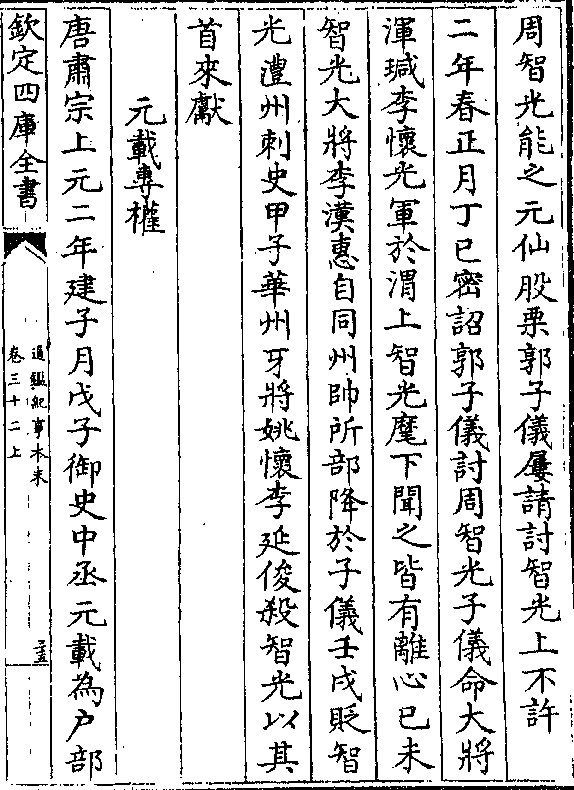 周智光能之元仙股栗郭子儀屢請討智光上不許
二年春正月丁巳密詔郭子儀討周智光子儀命大將
渾瑊李懷光軍於渭上智光麾下聞之皆有離心己未
智光大將李漢惠自同州帥所部降於子儀壬戌貶智
光澧州刺史甲子華州牙將姚懷李延俊殺智光以其
首來獻
元載專權
唐肅宗上元二年建子月戊子御史中丞元載為户部
欽定四庫全書
通鑑紀事本末
卷三十二上